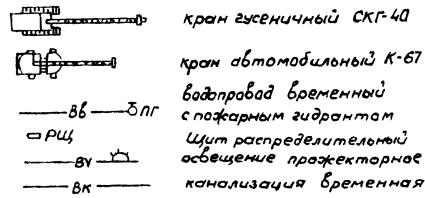 кран гусеничный СКГ-40
кран автомобильный К-67
водопровод временный
Вв ПГ с пожарным гидрантом
РЩ Щит распределительный
Ву освещение прожекторное
Вк канализация временная